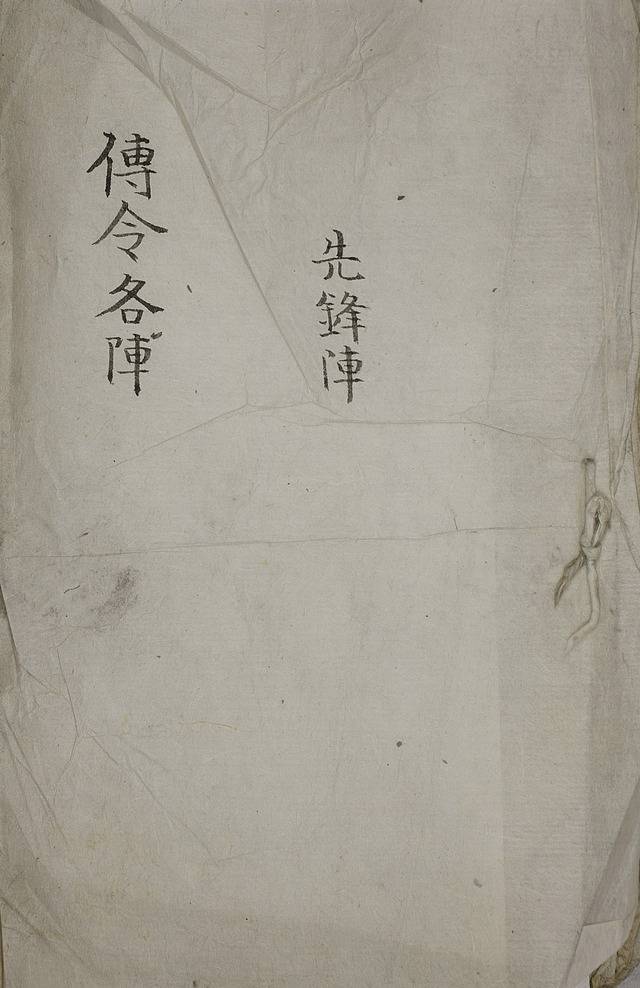 先鋒陣
傳令各陣